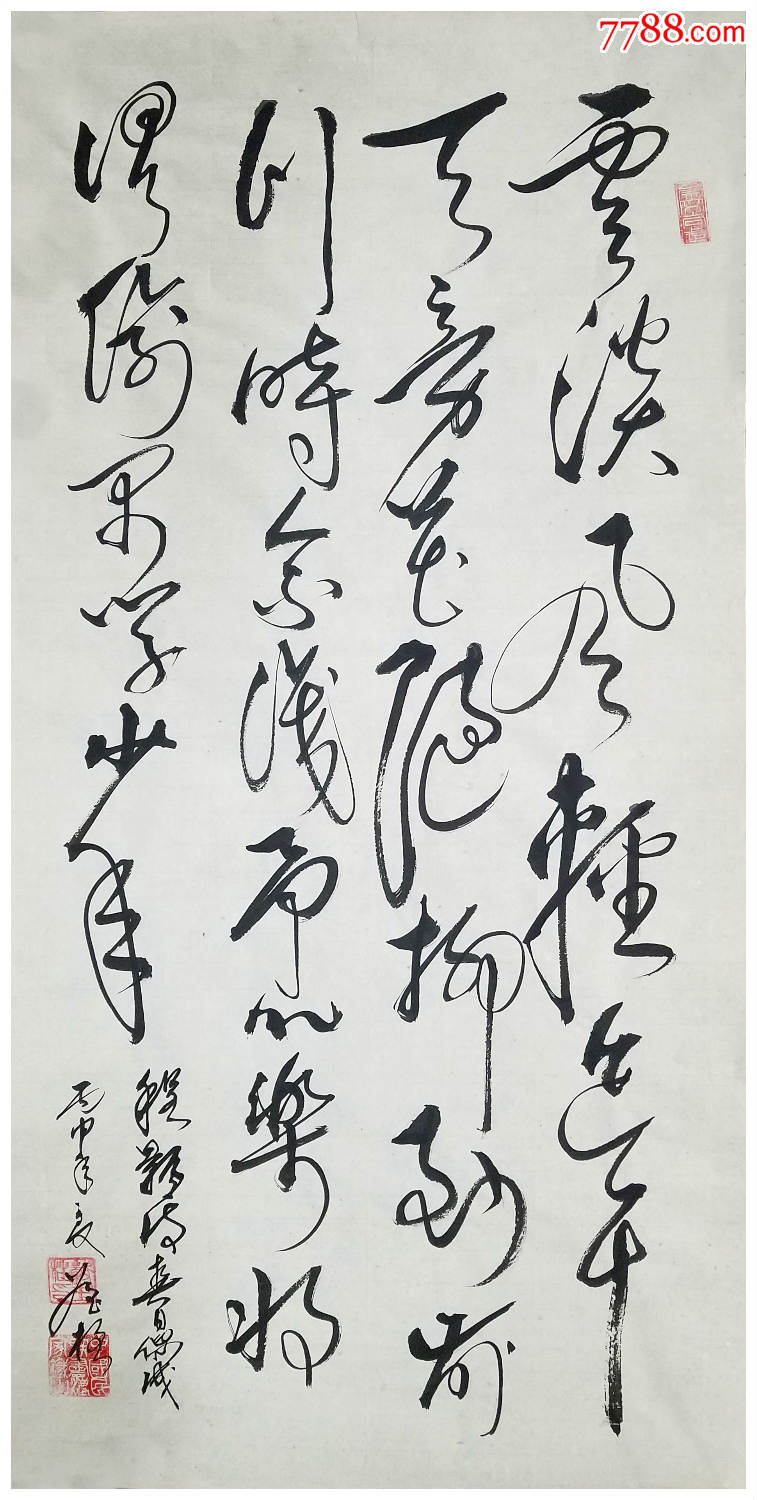 雲淡風輕近午
天旁花隨柳到前
川時人不識予心樂將
謂偷閑學少年
程顥詩春日偶成
丙申年夏
7788.com